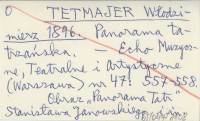 O TETMAJER Włodzi-
mierz 1896. Panorama ta-
trzańska. — Echo Muzycz-
ne, Teatralne i Artystyczne
(Warszawa) nr 47: 557-558.
Obraz „Panorama Tatr"
Stanisława Janowskiego